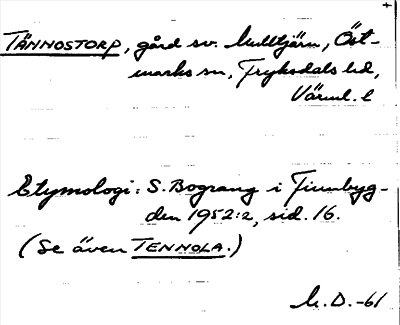 TÄNNOSTORP, gård sv. Mulltjärn, Öst-
marks sn, Fryksdals hd,
Värml. l
Etymologi: S. Bograng i Finnbyg-
den 1952:2, sid. 16.
(Se även TENNOLA.)
M.D.-61